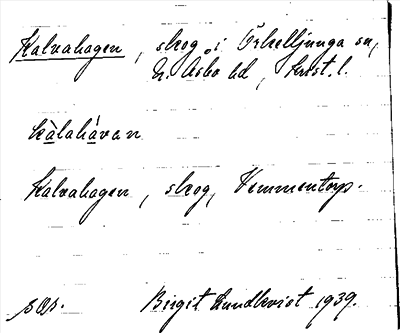 Kalvahagen, skog i Örkelljunga sn,
N. Åsbo hd, Krist. l.
kàlahávan
Kalvahagen, skog, Vemmentorp.
sas.
Birgit Lundkvist 1939.